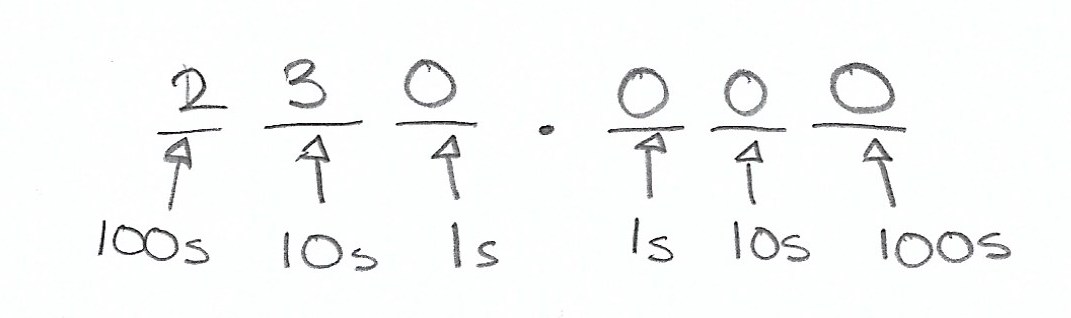 2 3 0 . 0 0 0
100s 10s 1s 1s 10s 100s